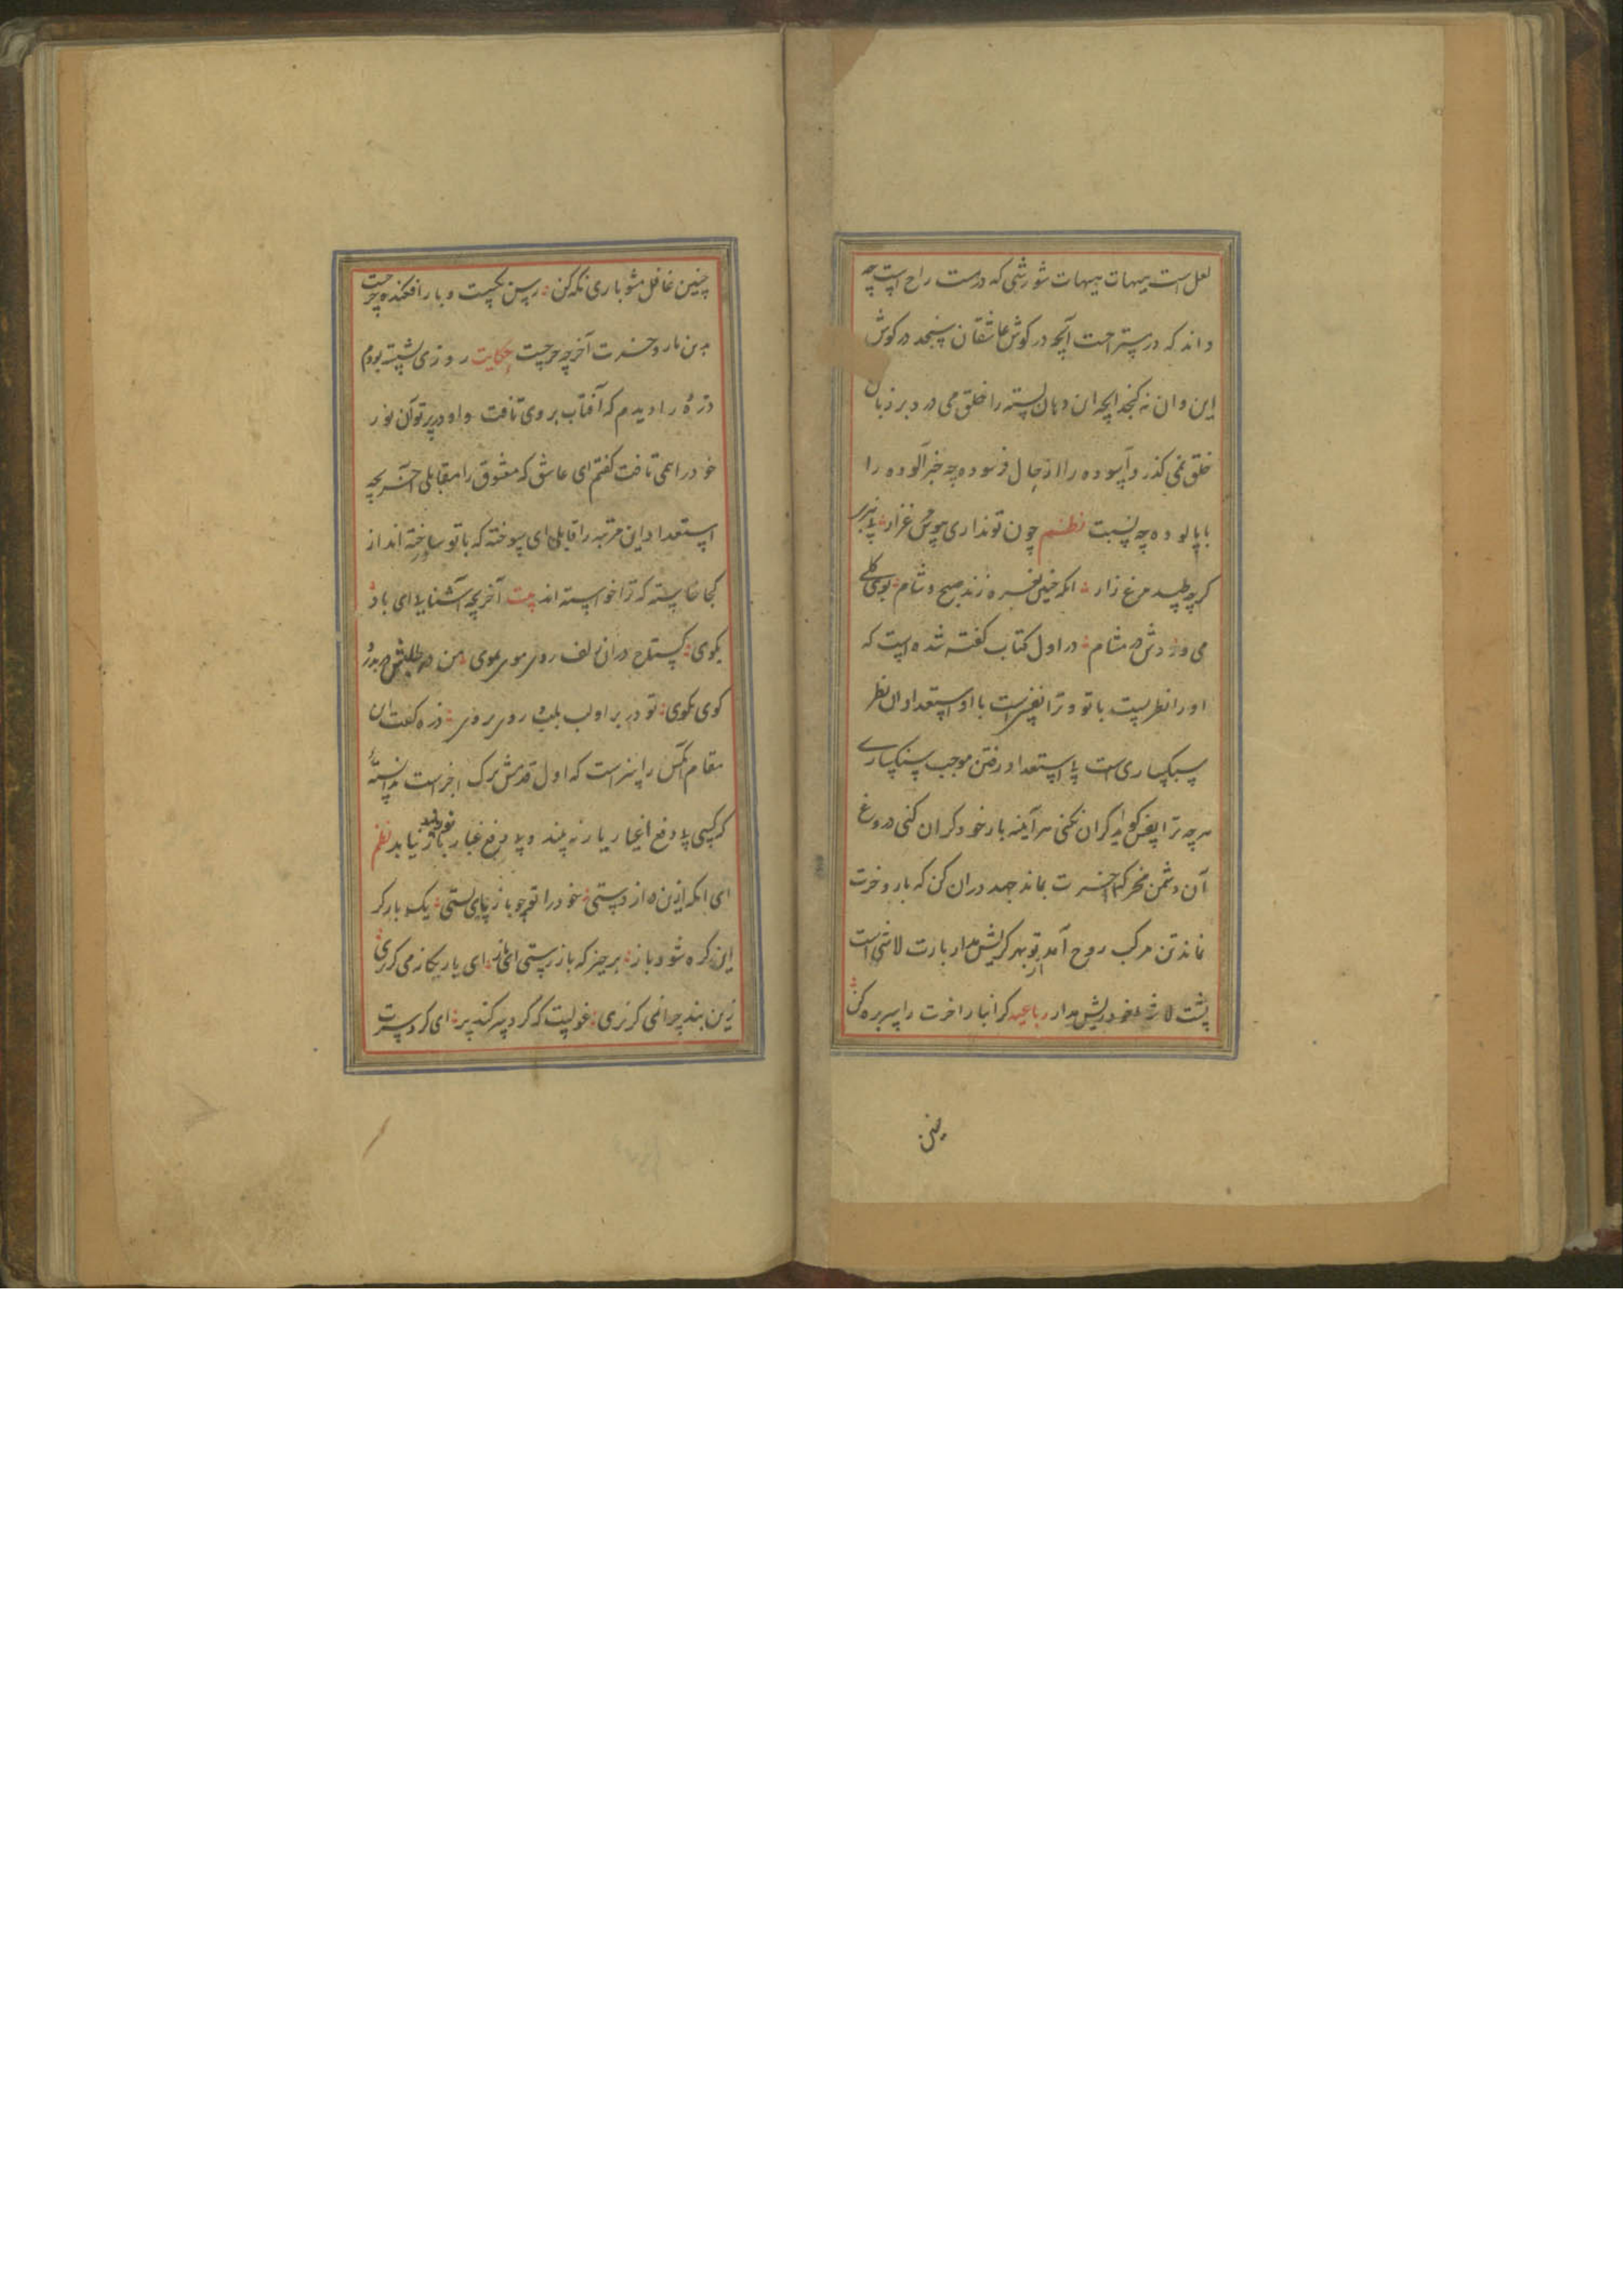 لعل است هیهات هیهات شورشی که درست راح است چه
داند که در ستر احت آنچه در کوش عاشقان سنجد در کوش
این وان نه کنجد آنچه ان دهان بسته را خلق می درد بر زبان
خلق نمی کذرد آسوده را از حال فرسوده چه خبر آلوده را
با پالوده چه نسبت نظم چون تو نداری هوس مرغزار
کر چه طپید مرغ زار انکه نفس زند صبح و شام بوی کلی
می وزدش در مشام در اول کتاب کفته شده است که
او را نظریست با تو و ترا نفسی است با او استعداد ان نظر
سبکساری است با استعداد رفتن موجب سنکساری
هرچه ترا بفس کوید کران نکنی هر آینه بار خود کران کنی دروغ
آن دشمن مخر که خرت بماند جهد دران کن که بار و خرت
نماند تن مرکب روح آمد تو بهر کریش مدار بارت لاشی است
پشت لاشه خود ریش مدار رباعیه کرانبار اخرت را سر بره کن
چنین غافل مشو باری نکه کن ز پس کیست و بار افکنده خرجیست
بدین بار و خرت آخر چه خرجیست حکایت روزی نشسته بودم
ذره را دیدم که آفتاب بر وی تافت و او در پرتو آن نور
خود را همی تافت کفتم ای عاشق که معشوق را مقابلی آخر بچه
استعداد این مرتبه را قابلی ای سوخته که با تو ساخته اند از
کجا خاسته که ترا خواسته اند بیت آخر بچه آشنایی ای باد
بکوی کستاخ دران زلف روی موی بموی من در طلبش در بدر و
کوی بکوی تو در بر او لب بلب و روی بروی ذره کفت این
مقام انکس را سزاست که اول قدمش ترک اجزاست ندانسته
که کسی بی دفع اغیار یار نه بیند و بی رفع غبار نور باز نیابد نظم
ای انکه ازین ده از دستی خود را تو چو باز پای بستی یکبار کر
این کره شود باز بر چیز که باز رستی ای باز ای یار بکار می کرنزی
زین بند چرا نمی کرنزی غولیست که کرد سر کند پر ای کرد سرت
چنین